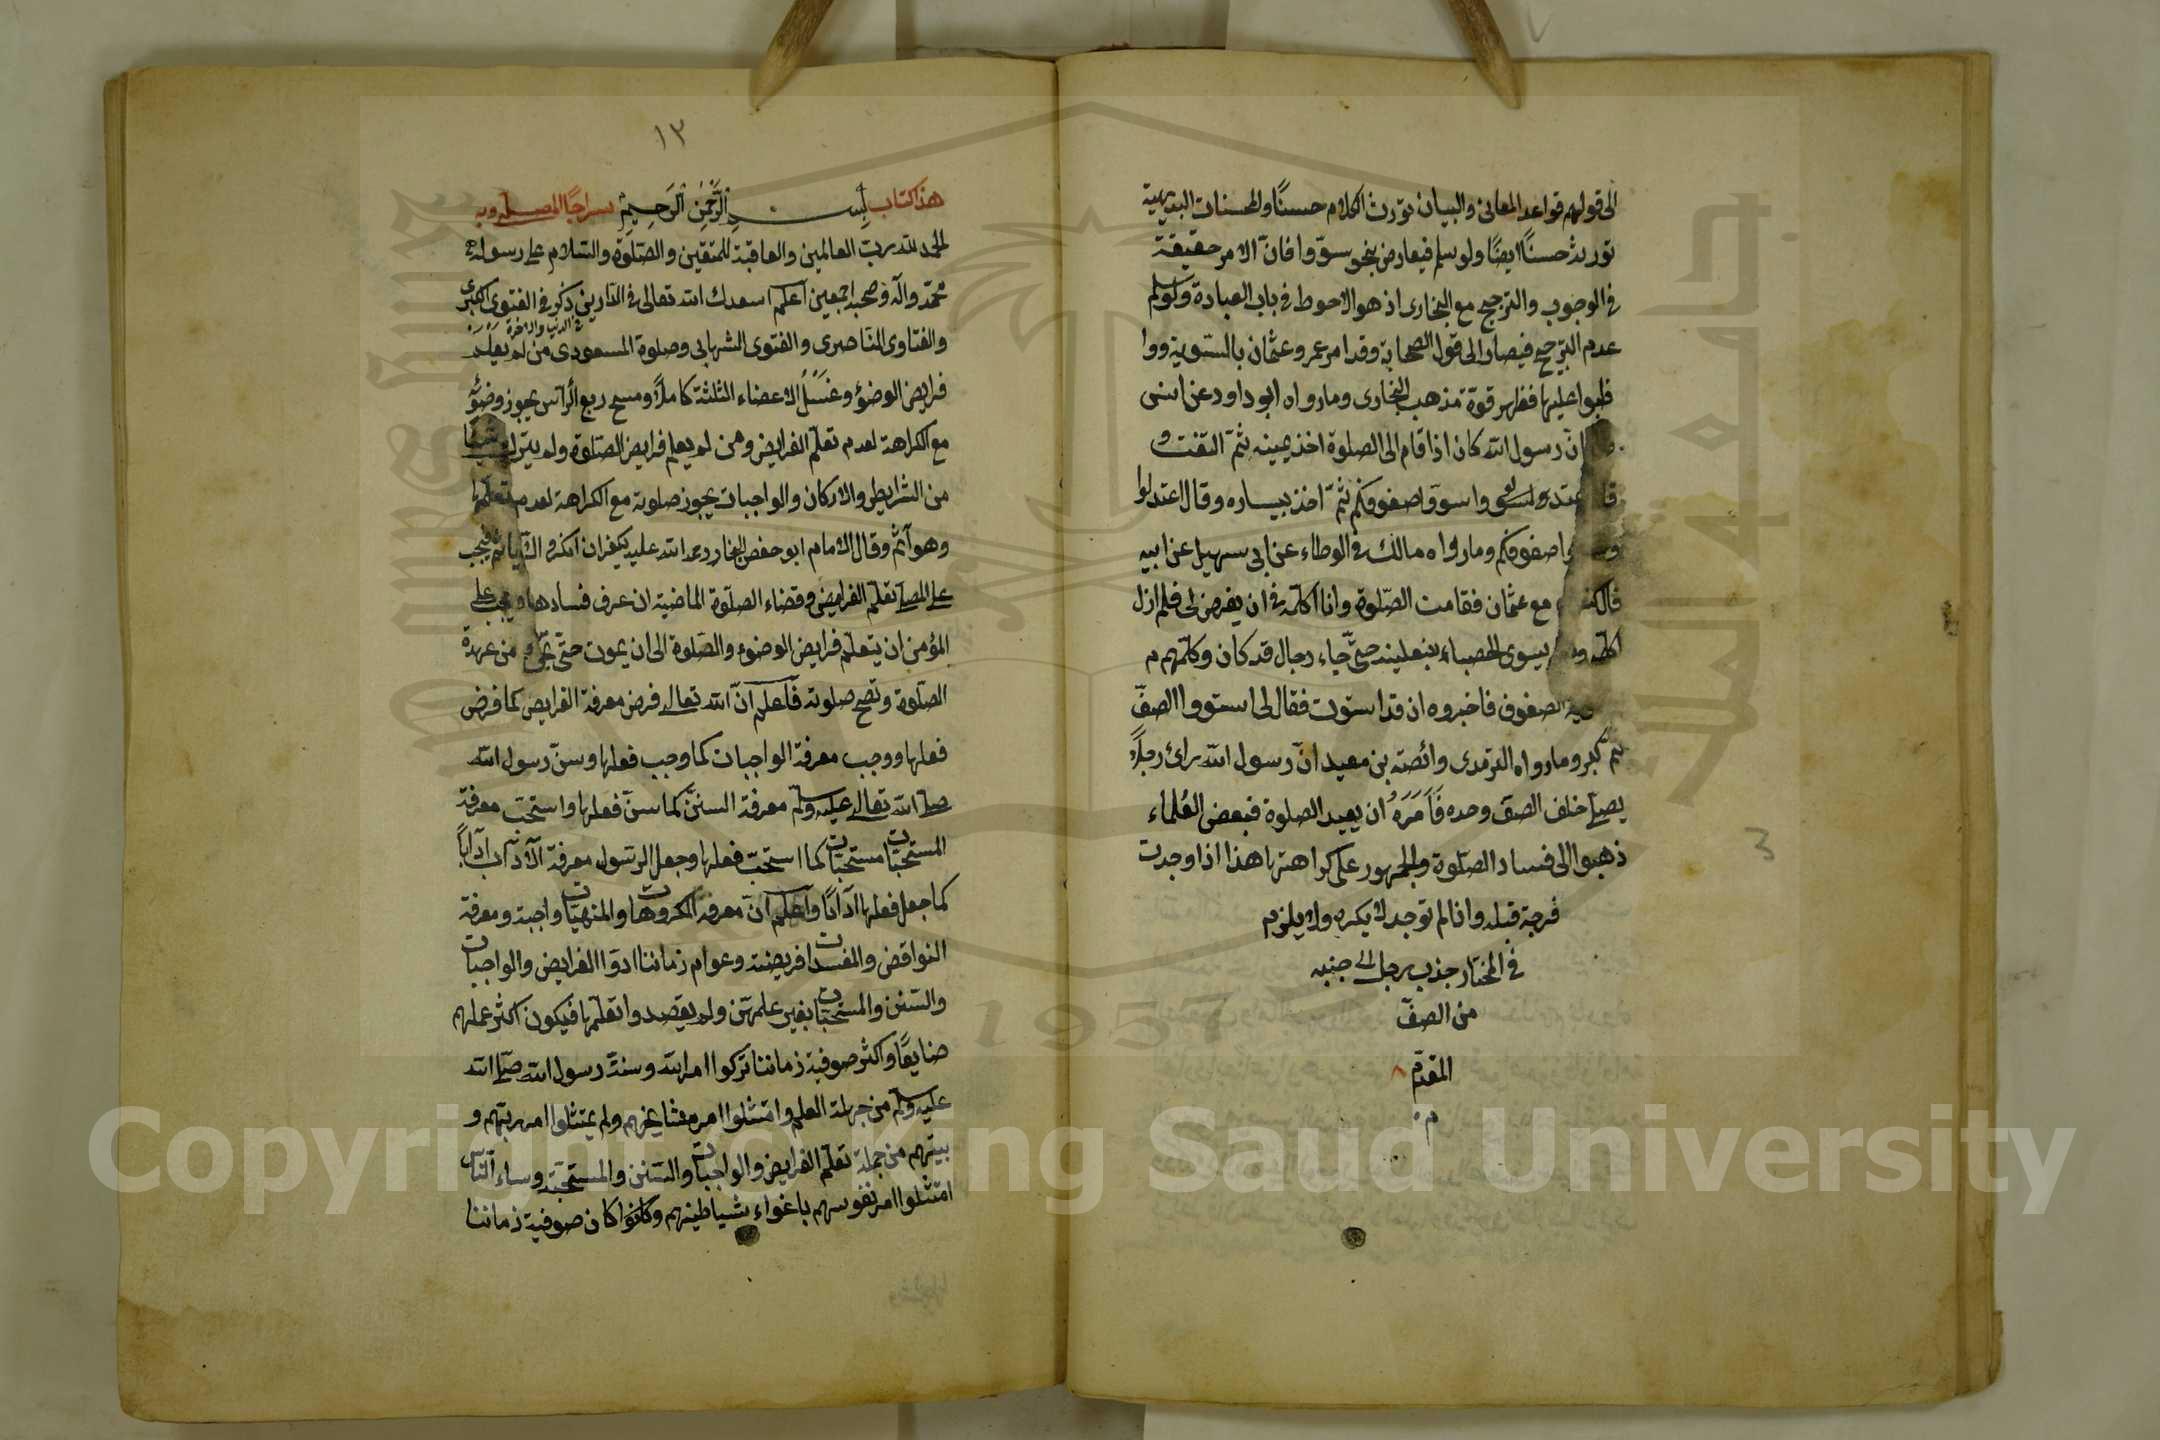 الى قولهم قواعد المعانى والبيان تورث الكلام حسنًا والمحسنات البديعية
تورث حسنًا ايضًا ولو سلم فيعارض بنحو سوّوا فانّ الامر حقيقة
فى الوجوب والترجيح مع البخارى اذ هو الاحوط فى باب العبادة ولو سلم
عدم الترجيح فيصار الى قول الصحابة وقد امر عمر وعثمان بالتسوية ووا
ظبوا عليها فظهر قوة مذهب البخارى وما رواه ابو داود عن انس
انّ رسول الله كان اذا قام الى الصلوة اخذ بيمينه ثمّ التفت و
واسووّا صفوفكم ثمّ اخذ بيساره وقال اعتدلوا
صفوفكم وما رواه مالك فى الموطاء عن ابى سهيل عن ابيه
مع عثمان فقامت الصّلوة وانا اكلّمه فى ان يفرض لى فلم ازل
يسوى الحصباء بنعليه حتّى جاء رجال قد كان وكلهم م
الصفوف فاخبروه ان قد استوت فقال لى استووا الصفّ
ثم كبر وما رواه الترمذى وائصة بن معيد انّ رسول الله رائ رجلًا
يصلى خلف الصف وحده فَاَمَرَهُ ان يعيد الصلوة فبعض العُلماء
ذهبوا الى فساد الصّلوة والجمهور على كراهتها هذا اذا وجدت
فرجة قبله وانا لم توجد لا يكره ولا يلزم
فى المختار جذب رجل الى جنبه
من الصفّ
المقدّم
م
3
١٣
هذا كتاب بِسْمِ اللهِ الرَّحْمٰنِ الرَّحِيمِ سراجًا المصلى وبه
الحمد لله رب العالمين والعاقبة للمتقين والصّلوة والسّلام على رسوله
محمّد وآله وصحبه اجمعين اعلم اسعدك الله تعالى فى الدّارين ذكر فى الفتوى الكبرى
فى الدنيا والاخرة
والفتاوى النّاصرى والفتوى الشهابى وصلوة المسعودى من لم يعلم
فرايض الوضؤ وغَسْلُ الاعضاء الثلثة كاملًا ومسح ربع الرّأس يجوز وضؤه
مع الكراهة لعدم تعلّم الفرايض ومن لم يعلم فرايض الصّلوة ولم يترك شيئا
من الشرايط والاركان والواجبات يجوز صلوته مع الكراهة لعدم تعلّمها
وهو آثم وقال الامام ابو حفص البخار رحمه الله عليه يكفر ان انكره فيجب
على المصلى تعلّم الفرايض وقضاء الصلوة الماضية ان عرف فسادها ويجب على
المؤمن ان يتعلّم فرايض الوضوء والصّلوة الى ان يموت حتّى من عهدة
الصّلوة وتصح صلوته فاعلم انّ الله تعالى فرض معرفة الفرايض كما فرض
فعلها ووجب معرفة الواجبات كما وجب فعلها وسنّ رسول الله
صلى الله تعالى عليه وسلم معرفة السننّ كما سنّ فعلها واستحبّ معرفة
المستحبّات مستحبّات كما استحبّ فعلها وجعل الرسول معرفة الآداب آدابًا
كما جعل فعلها آدابًا واعلم انّ معرفة المكروهات والمنهيّات واجبة ومعرفة
النواقض والمفسدات فريضة وعوام زماننا ادوّا الفرايض والواجبات
والسّنن والمستحبّات بغير علمهنّ ولم يقصدوا تعلّمها فيكون اكثر عملهم
ضايعًا واكثر صوفية زماننا تركوا امر الله وسنة رسول الله صلى الله
عليه وسلم من جهلة العلم وامتثلوا امر مشايخهم ولم يمتثلوا امر ربّهم و
نبيّهم من جملة تعلّم الفرايض والواجبات والسّنن والمستحبّة وساء النّاس
امتثلوا امر نفوسهم باغواء شياطينهم وكانوا كان صوفية زماننا
Copyright © King Saud University
1957